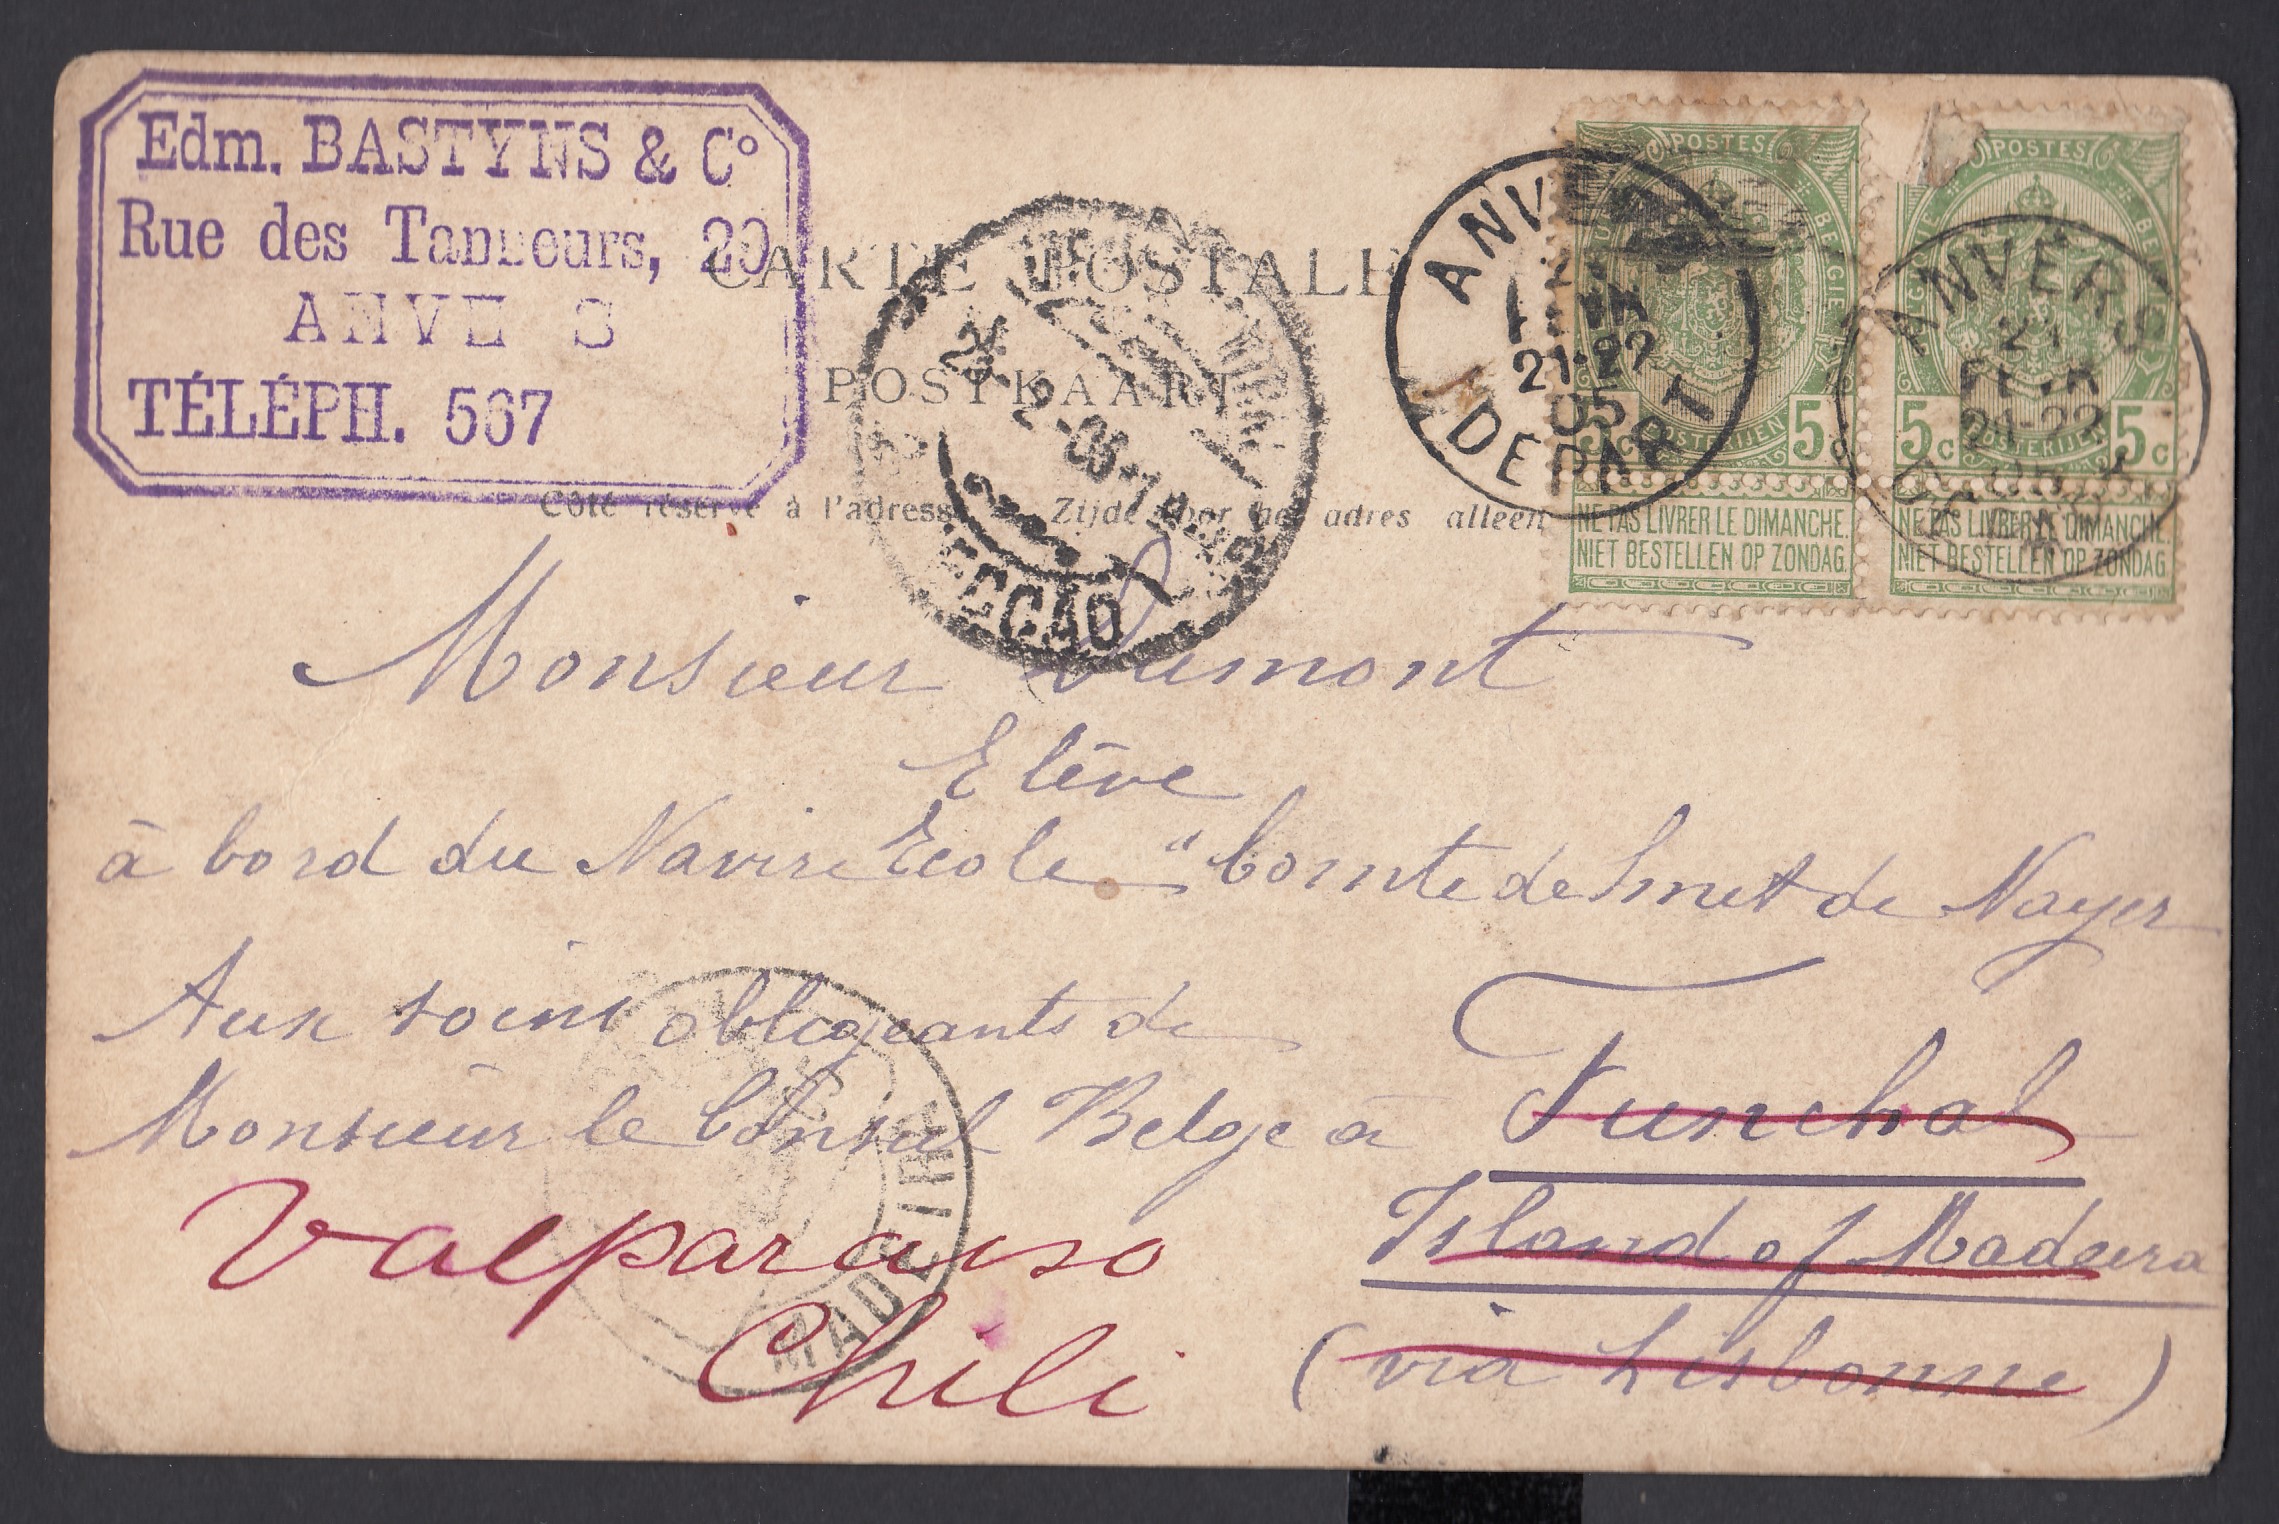 Edm. BASTYNS & Co
Rue des Tanneurs, 20
ANVE S
TÉLÉPH. 567
CARTE POSTALE
POSTKAART
Côté réservé à l'adresse
Zijde voor het adres alleen
ANVERS
21-22
05
DEPART
ANVERS
21
FEVR
21-22
POSTES
POSTES
5c 5c
5c 5c
POSTERIJEN
POSTERIJEN
NE PAS LIVRER LE DIMANCHE.
NIET BESTELLEN OP ZONDAG.
NE PAS LIVRER LE DIMANCHE.
NIET BESTELLEN OP ZONDAG.
Monsieur Dumont
Elève
à bord du Navire Ecole "Comte de Smet de Nayer
Aux soins obligeants de
Monsieur le Consul Belge à Funchal
Island of Madeira
(via Lisbonne)
Valparaiso
Chili
MADEIRA